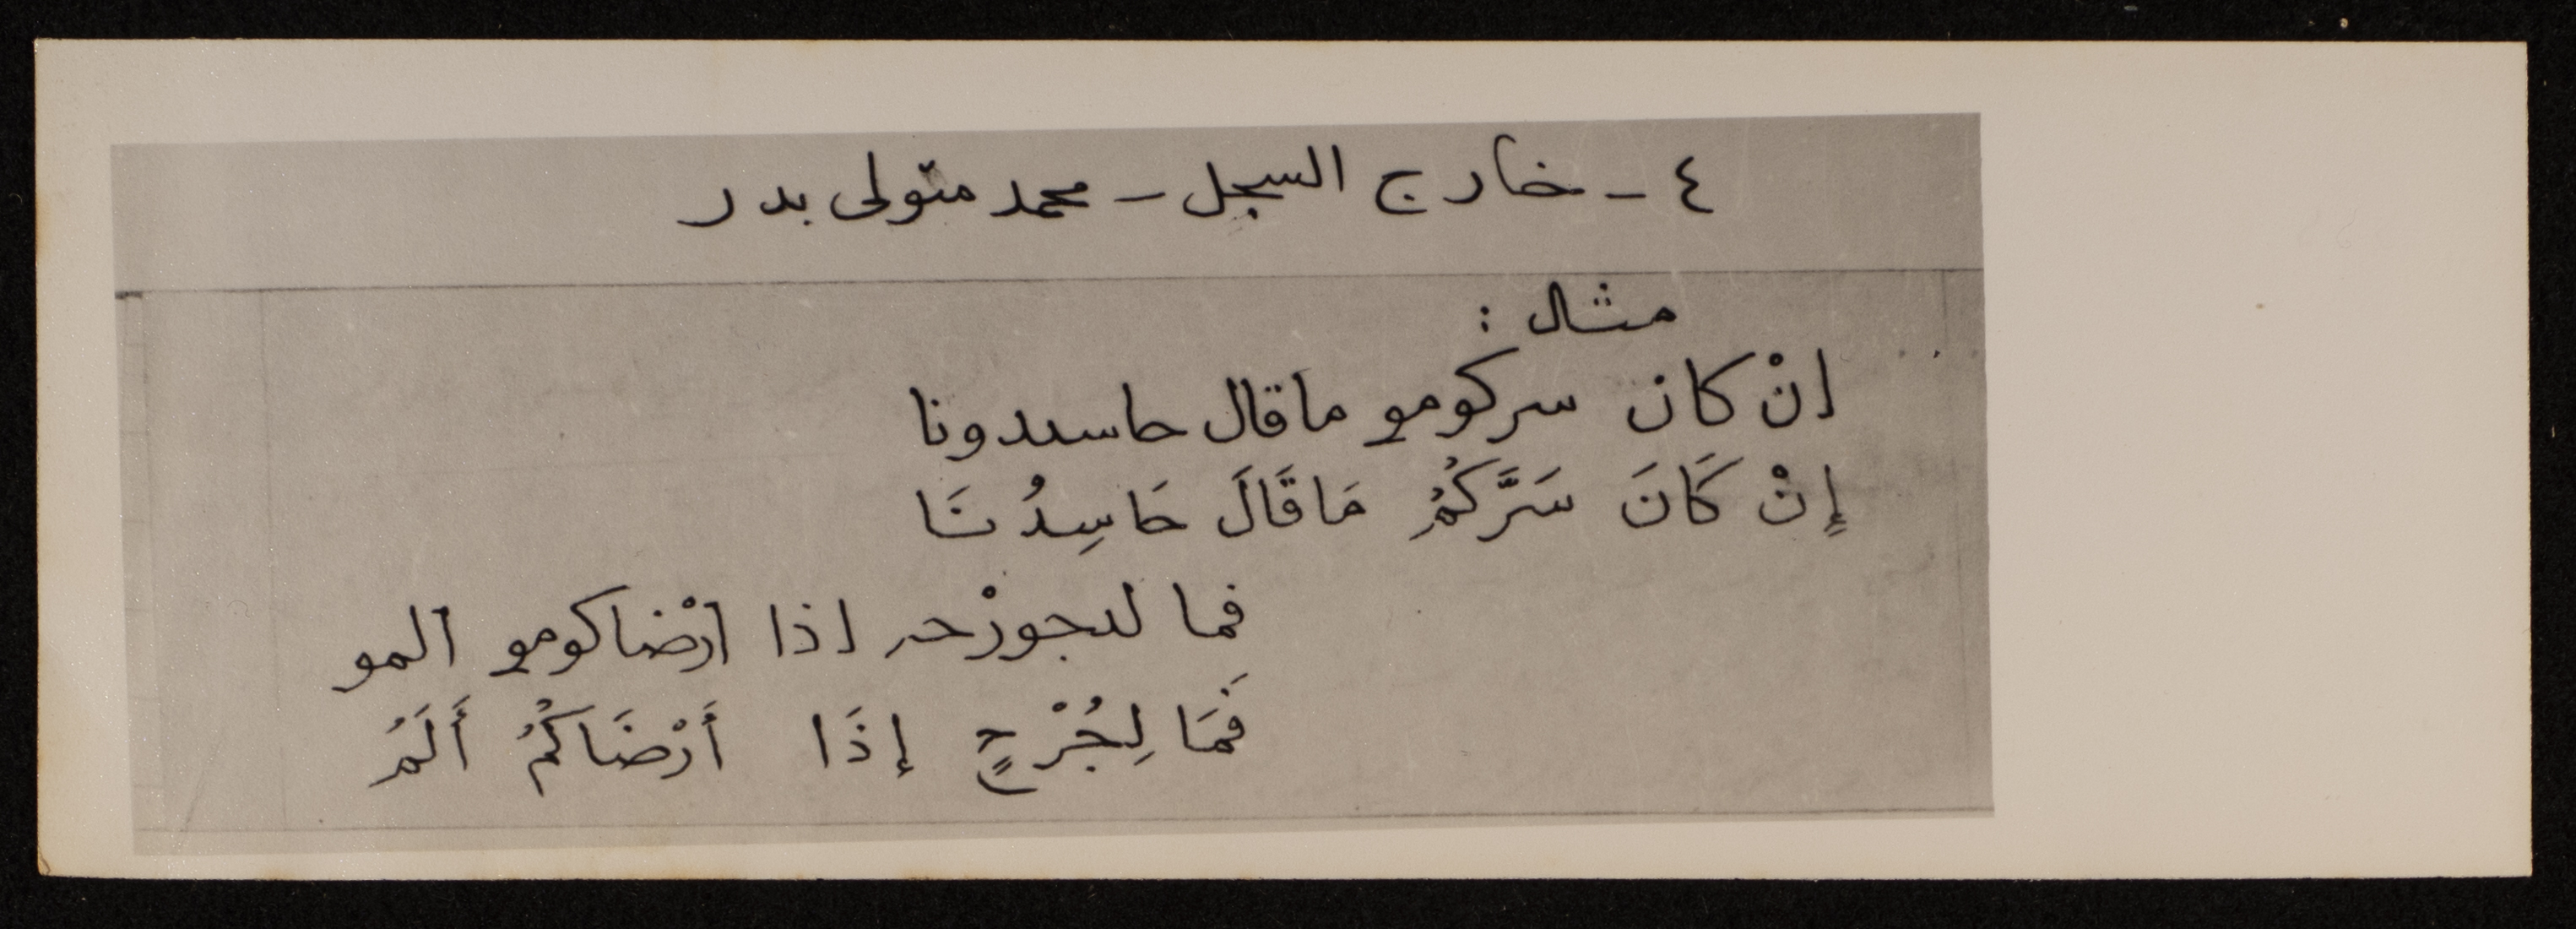 ٤ - خارج السجل - محمد متولى بدر
مثال :
انْ كان سركومو ماقال حاسدونا
إِنْ كَانَ سَرَّكُمُ مَاقَالَ حَاسِدُنَا
فما لجورْح اذا ارْضاكومو المو
فَمَا لِجُرْحٍ إذَا أَرْضَاكُمُ أَلَمُ